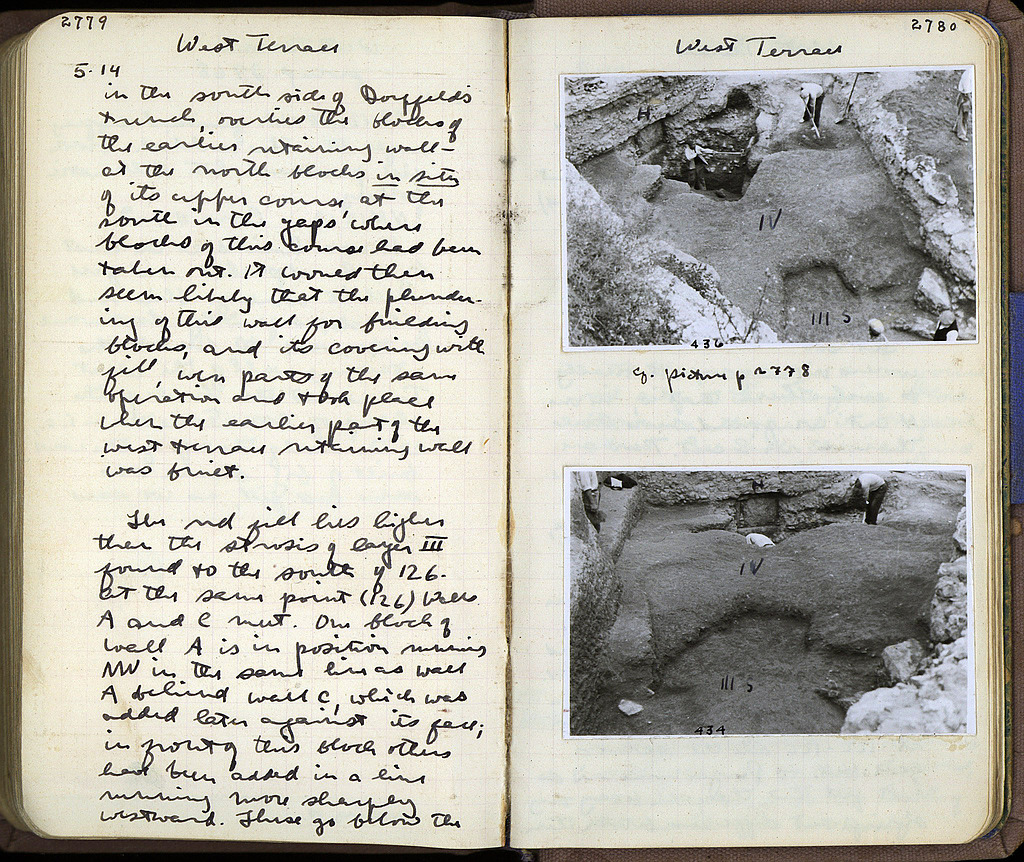 2779
West Terrace
5.14
in the south side of Dörpfeld's
trench, overlies the blocks of
the earlier retaining wall –
at the north blocks in situ
of its upper course, at the
south in the gaps where
blocks of this course had been
taken out. It would then
seem likely that the plunder-
ing of this wall for building
blocks, and its covering with
fill, were parts of the same
operation and took place
when the earlier part of the
west terrace retaining wall
was built.
The red fill lies higher
than the strosis of layer III
found to the south of 126.
At the same point (126) walls
A and C meet. One block of
wall A is in position running
NW in the same line as wall
A behind wall C, which was
added later against its face;
in front of this block others
had been added in a line
running more sharply
westward. These go below the
2780
West Terrace
H
IV
III S
436
cf. picture p 2778
H
IV
III S
434